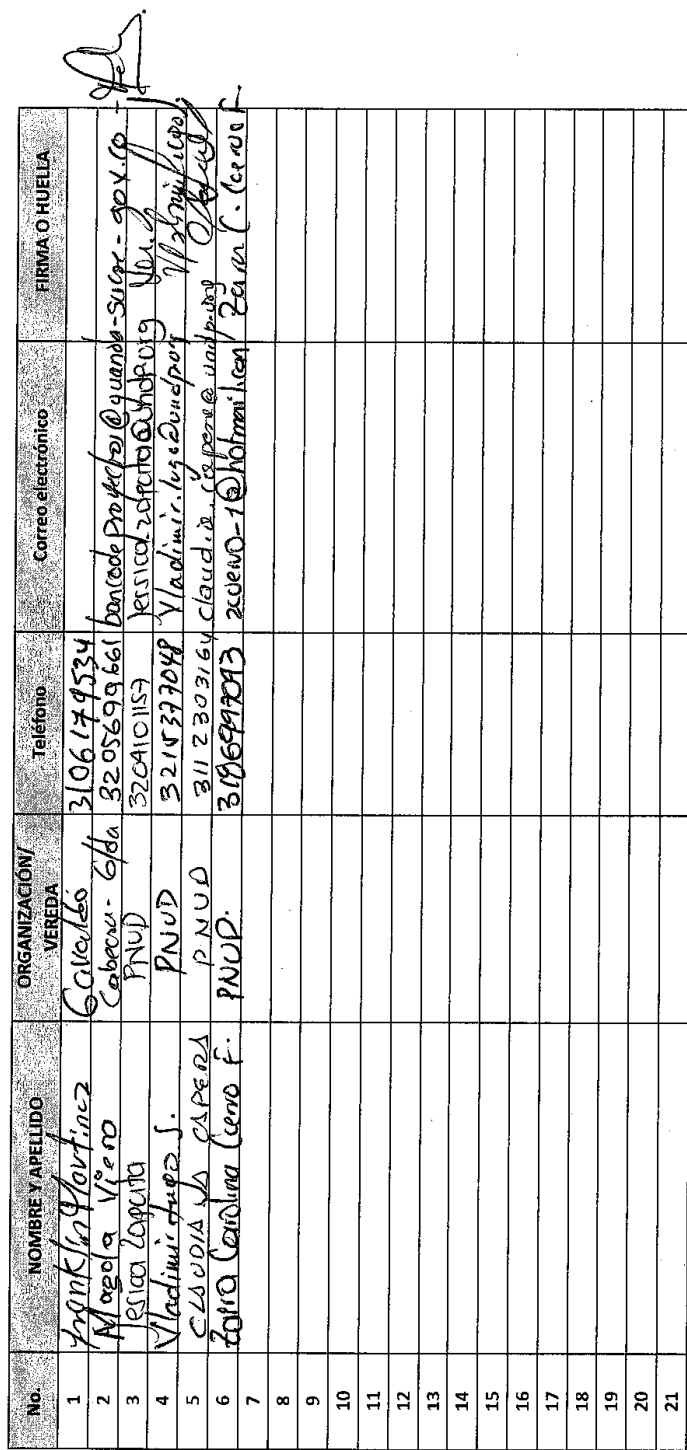 No. NOMBRE Y APELLIDO ORGANIZACIÓN/ VEREDA Teléfono Correo electrónico FIRMA O HUELLA
1 Franklin Martinez 3106179534
2 Magola Viero Cabecera - G/da 3205699661 bancodeproyectos@guaranda-sucre-gov.co
3 Jessica Zapata PNUD 3204101157 jessica.zapata@undp.org
4 Vladimir Lugo S. PNUD 3215377048 Vladimir.lugo@undp.org
5 CLAUDIA CAPERA PNUD 3112303164 claudia.capera@undp.org
6 Carolina PNUD. 3186997093 acueno-1@hotmail.com
7
8
9
10
11
12
13
14
15
16
17
18
19
20
21